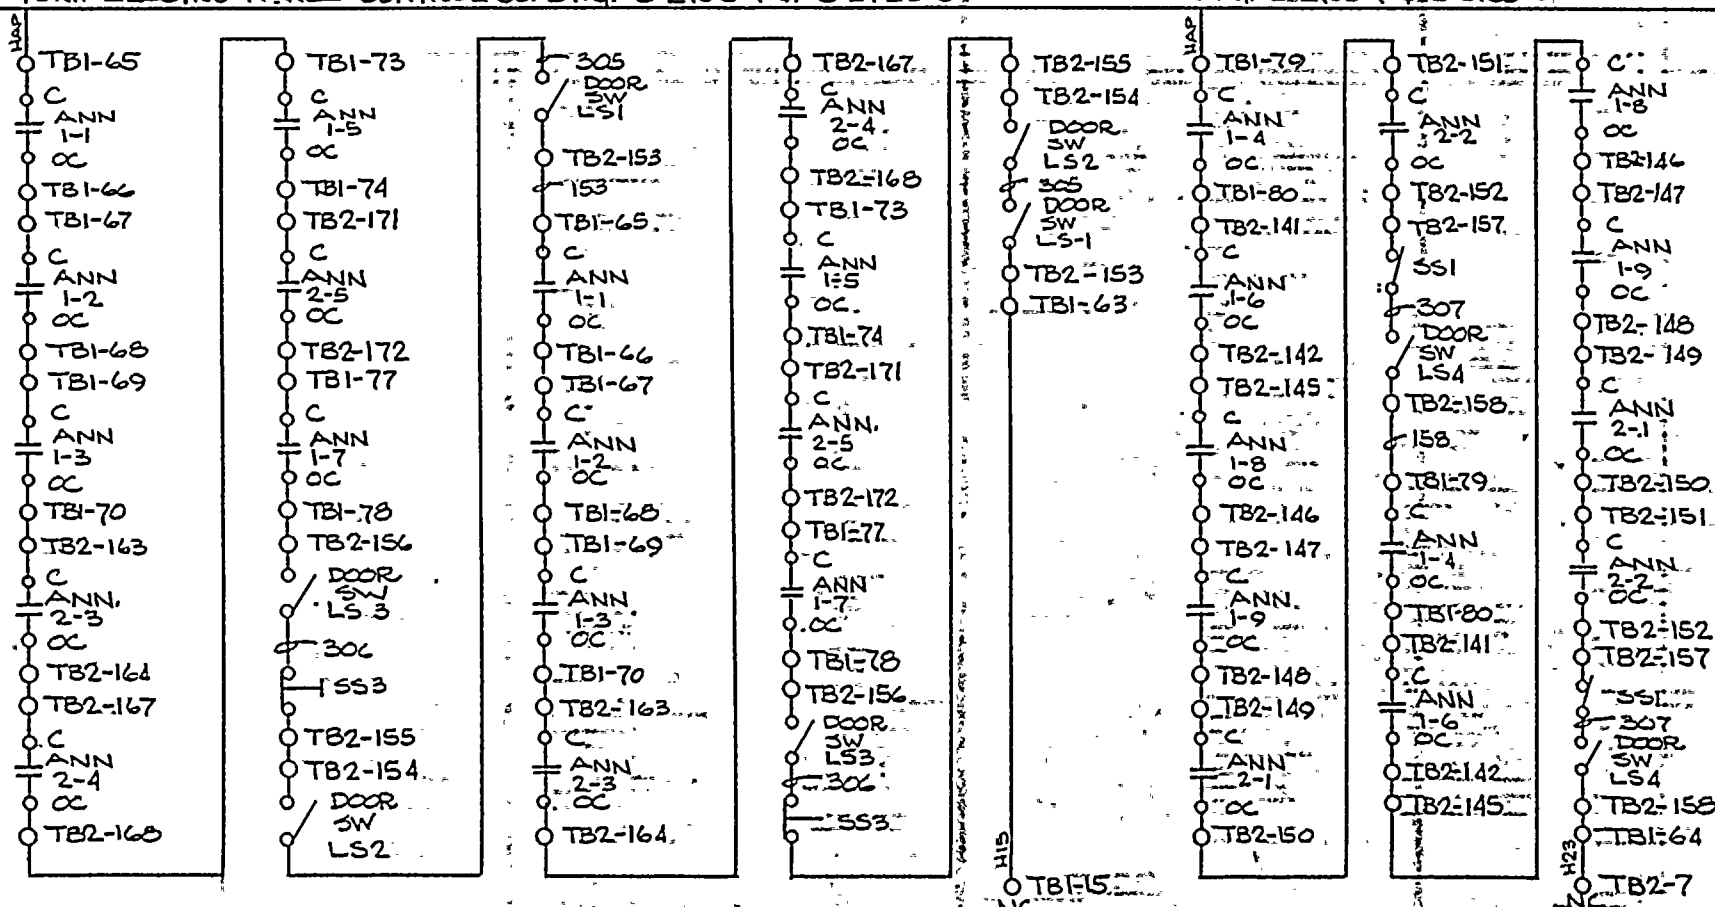 HAP
TB1-65
C
ANN
1-1
OC
TB1-66
TB1-67
C
ANN
1-2
OC
TB1-68
TB1-69
C
ANN
1-3
OC
TB1-70
TB2-163
C
ANN.
2-3
OC
TB2-164
TB2-167
C
ANN
2-4
OC
TB2-168
TB1-73
C
ANN
1-5
OC
TB1-74
TB2-171
C
ANN
2-5
OC
TB2-172
TB1-77
C
ANN
1-7
OC
TB1-78
TB2-156
DOOR
SW
LS3
306
SS3
TB2-155
TB2-154
DOOR
SW
LS2
305
DOOR
SW
LS1
TB2-153
153
TB1-65
C
ANN
1-1
OC
TB1-66
TB1-67
C
ANN
1-2
OC
TB1-68
TB1-69
C
ANN
1-3
OC
TB1-70
TB2-163
C
ANN
2-3
OC
TB2-164
TB2-167
C
ANN
2-4
OC
TB2-168
TB1-73
C
ANN
1-5
OC
TB1-74
TB2-171
C
ANN.
2-5
OC
TB2-172
TB1-77
C
ANN
1-7
OC
TB1-78
TB2-156
DOOR
SW
LS3
306
SS3
TB2-155
TB2-154
DOOR
SW
LS2
305
DOOR
SW
LS-1
TB2-153
TB1-63
H15
TB1-15
HAP
TB1-79
C
ANN
1-4
OC
TB1-80
TB2-141
C
ANN
1-6
OC
TB2-142
TB2-145
C
ANN
1-8
OC
TB2-146
TB2-147
C
ANN
1-9
OC
TB2-148
TB2-149
C
ANN
2-1
OC
TB2-150
TB2-151
C
ANN
2-2
OC
TB2-152
TB2-157
SS1
307
DOOR
SW
LS4
TB2-158
158
TB1-79
C
ANN
1-4
OC
TB1-80
TB2-141
C
ANN
1-6
OC
TB2-142
TB2-145
C
ANN
1-8
OC
TB2-146
TB2-147
C
ANN
1-9
OC
TB2-148
TB2-149
C
ANN
2-1
OC
TB2-150
TB2-151
C
ANN
2-2
OC
TB2-152
TB2-157
SS1
307
DOOR
SW
LS4
TB2-158
TB1-64
H23
TB2-7